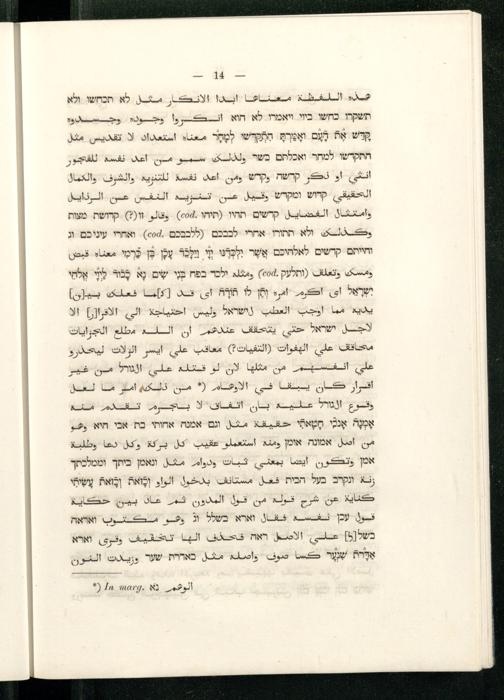 — 14 —
هذه اللفظة معناها ابدا الانكار مثل לא תכחשו ולא
תשקרו כחשו ביוי ויאמרו לא הוא انكروا وجوده وجحدوه
קַדֵּשׁ אֶת הָעָם וְאָמַרְתָּ הִתְקַדְּשׁוּ לְמָחָר معناه استعداد لا تقديس مثل
התקדשו למחר ואכלתם בשר ولذلك سمو من اعد نفسه للفجور
انثى او ذكر קדשה וקדש ومن اعد نفسه للتنزيه والشرف والكمال
الحقيقي קדוש ומקדש وقيل عن تنزيه النفس عن الرذايل
وامتثال الفضايل קדשים תהיו (תיהו .cod) وقالو זו(?) קדושת מצות
وكذلك ולא תתורו אחרי לבבכם (ללבבכם .cod) ואחרי עיניכם וג
והייתם קדשים לאלהיכם אֲשֶׁר יִלְכְּדֶנּוּ יְיָ וַיִּלָּכֵד עָכָן בֶּן כַּרְמִי معناه قبض
ومسك وتعلق (وتلعق .cod) ومثله ילכד בפח בני שִׂים נָא כָבוֹד לַייָ אֱלֹהֵי
יִשְׂרָאֵל اى اكرم امره וְתֶן לוֹ תוֹדָה اى قد [ذ]ما فعلك بيـ[ن]
يديه مما اوجب العطب لישראל وليس احتياجة الى الاقرا[ر] الا
لاجل ישראל حتى يتحقق عندهم ان الله مطلع الجزايات
محاقق على الهفوات (التفيات?) معاقب على ايسر الزلات ليحذرو
على انفسهم من مثلها لان لو قتله على الגורל من غير
اقرار كان يبقا في الاوهام (* من ذلك امر ما لعل
وقوع الגורל عليه بان اتفاق لا بجرم تقدم منه
אָמְנָה אָנֹכִי חָטָאתִי حقيقة مثل וגם אמנה אחותי בת אבי הוא وهو
من اصل אמונה אומן ومنه استعملو عقيب كل بركة وكل دعا وطلبة
אמן وتكون ايضا بمعنى ثبات ودوام مثل ונאמן ביתך וממלכתך
زنة ונקרב בעל הבית فعل مستانف بدخول الواو וְכָזֹאת וְכָזֹאת עָשִׂיתִי
كناية عن شرح قوله من قول المدون ثم عاد بين حكاية
قول עכן نفسه فقال וארא בשלל וג وهو مكتوب ואראה
בשל[ל] على الاصل ראה فحذف الها تخفيف وقرى וארא
אַדֶּרֶת שִׁנְעָר كسا صوف واصله مثل כאדרת שער وزيدت النون
*) In marg. الوهم נא